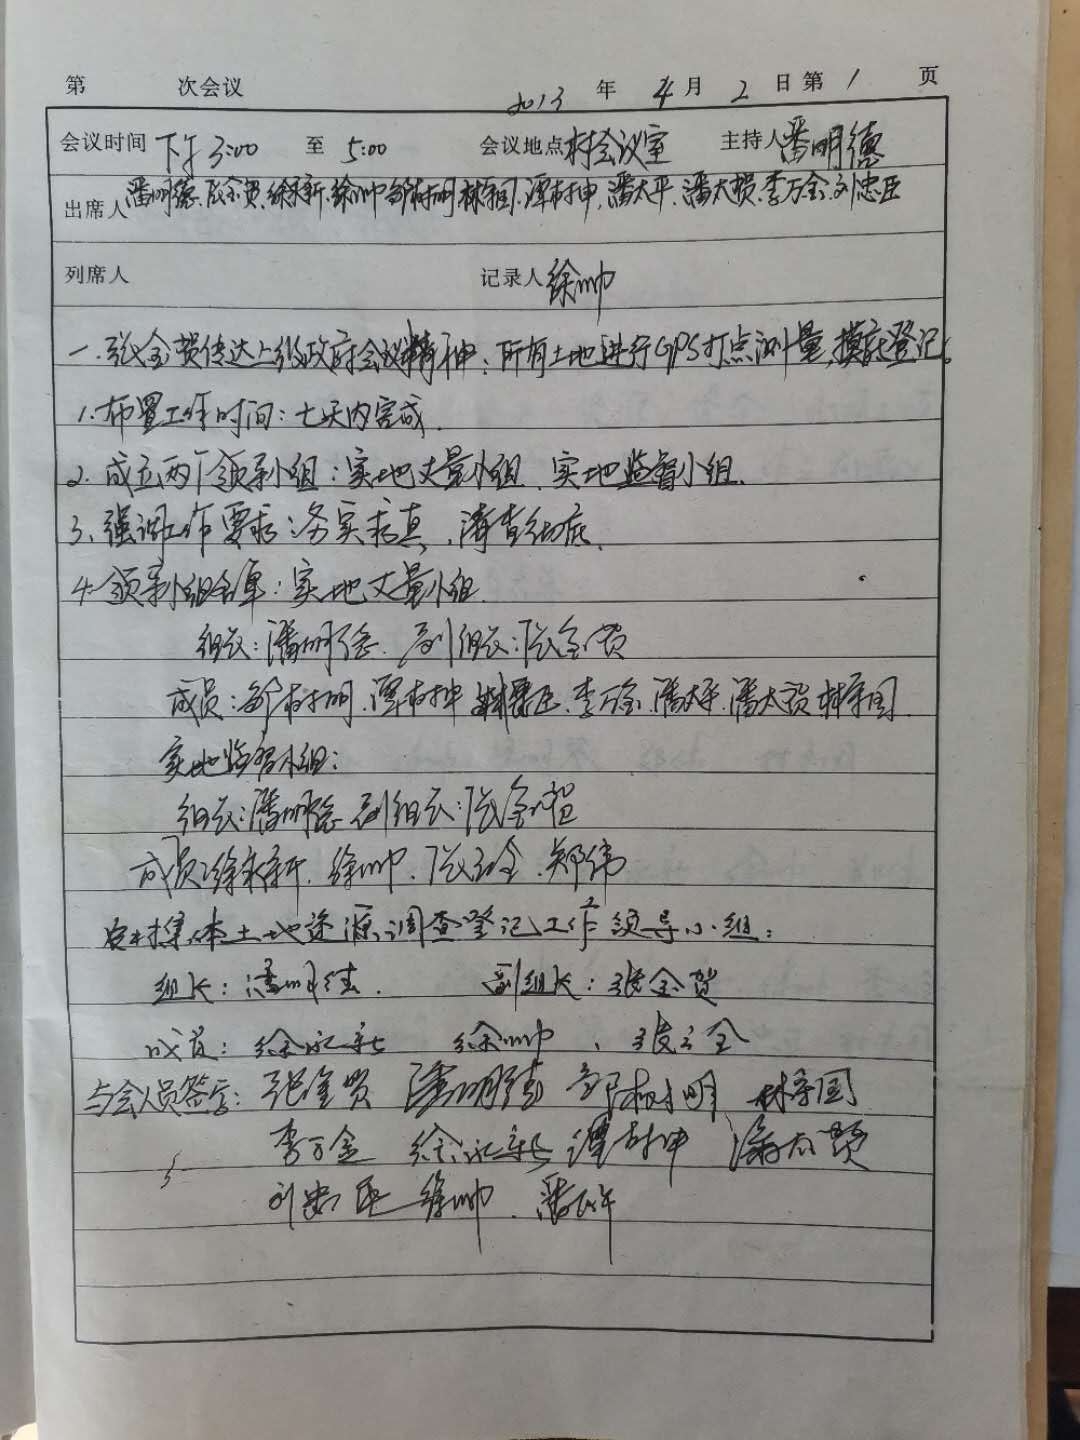 第 次会议 2013 年 4 月 2 日 第 1 页
会议时间 下午3:00 至 5:00 会议地点 村会议室 主持人 潘明德
出席人 潘明德、张金贺、徐永新、徐帅、邹树明、林守国、谭树坤、潘太平、潘太贤、李万金、刘忠臣
列席人 记录人 徐帅
一、张金贺传达上级政府会议精神:所有土地进行GPS打点测量,摸底登记。
1.布置工作时间:七天内完成.
2.成立两个领导小组:实地丈量小组、实地监督小组.
3、强调工作要求:务实求真、清查彻底、
4.领导小组名单:实地丈量小组.
组长:潘明德、副组长:张金贺
成员:邹树明、谭树坤、忠臣、李万金、潘太平、潘太贤、林守国
实地监督小组:
组长:潘明德 副组长:张金贺
成员:徐永新、徐帅、张玉全、郑伟
村集体土地资源调查登记工作领导小组:
组长:潘明德. 副组长:张金贺
成员:徐永新 徐帅、张玉全
与会人员签字:张金贺 潘明德 邹树明 林守国
李万金 徐永新 谭树坤 潘太贤
刘忠臣 徐帅、潘太平